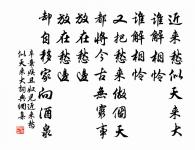 近來愁似天來大
誰解相憐
誰解相憐
又把愁來做個天
都將今古無窮事
放在愁邊
放在愁邊
卻自移家向酒泉
辛棄疾丑奴兒近來愁
似天來大詞